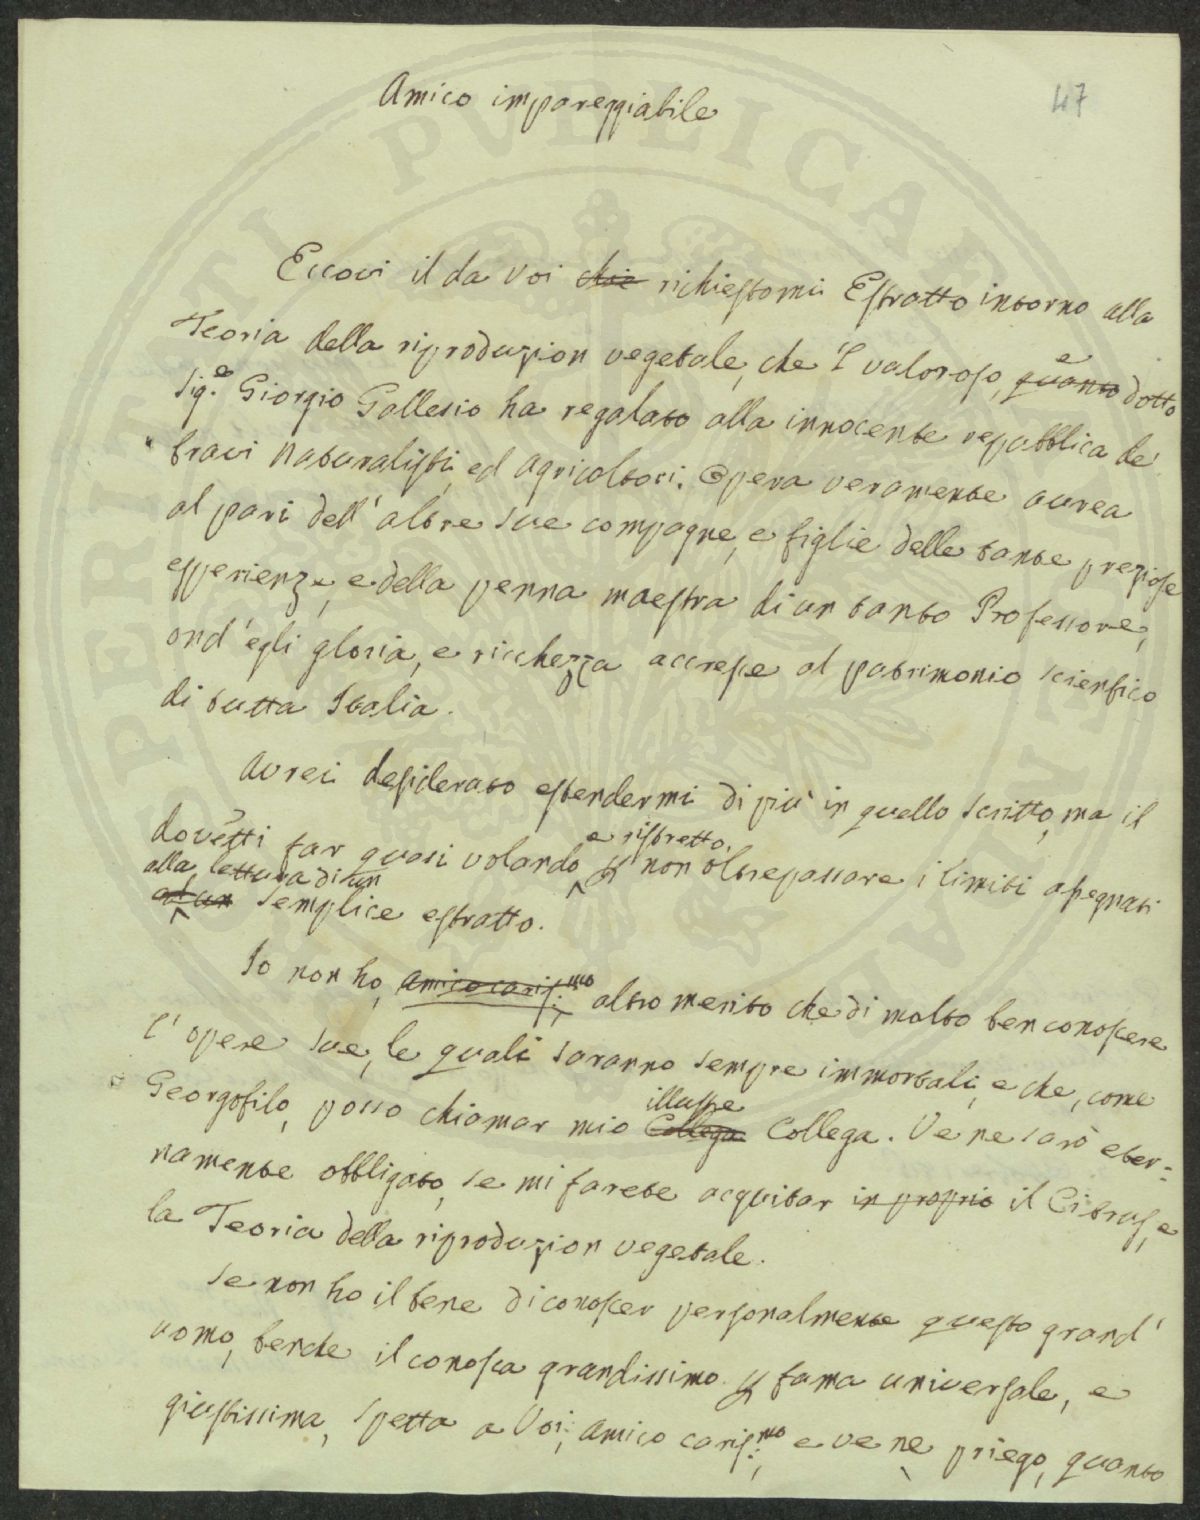 47
Amico impareggiabile
Eccovi il da Voi che richiestomi Estratto intorno alla
Teoria della riproduzion vegetale, che 'l valoroso, quanto e dotto
Sig.e Giorgio Gallesio ha regalato alla innocente repubblica de'
bravi naturalisti, ed agricoltori. Opera veramente aurea
al pari dell'altre sue compagne, e figlie delle tante preziose
esperienze, e della penna maestra di un tanto Professore,
ond'egli gloria, e ricchezza accresce al patrimonio scientifico
di tutta Italia.
Avrei desiderato estendermi di più in quello scritto, ma il
dovetti far quasi volando, e ristretto, p non oltrepassare i limiti assegnati
ad un alla lettura di un semplice estratto.
Io non ho, amico caris:mo, altro merito che di molto ben conoscere
l'opere sue, le quali saranno sempre immortali, e che, come
Georgofilo, posso chiamar mio Collega illustre Collega. Ve ne sarò eter=
namente obbligato, se mi farete acquistar in proprio il Citrus, e
la Teoria della riproduzion vegetale.
Se non ho il bene di conoscer personalmente questo grand'
uomo, benche il conosca grandissimo p fama universale, e
giustissima, spetta a Voi, amico caris:mo, e ve ne priego, quanto